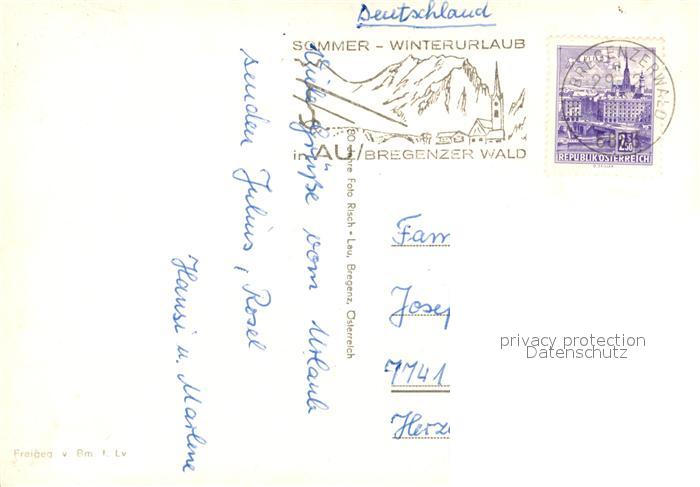 Deutschland
SOMMER - WINTERURLAUB
in AU/BREGENZER WALD
BREGENZERWALD
REPUBLIK ÖSTERREICH
Viele Grüße vom Urlaub
senden Julius, Rosel
Hansi u. Marlene
Foto Risch-Lau, Bregenz, Österreich
Fam
Josep
7741
Herz
privacy protection
Datenschutz
Freigeg v Bm f. Lv